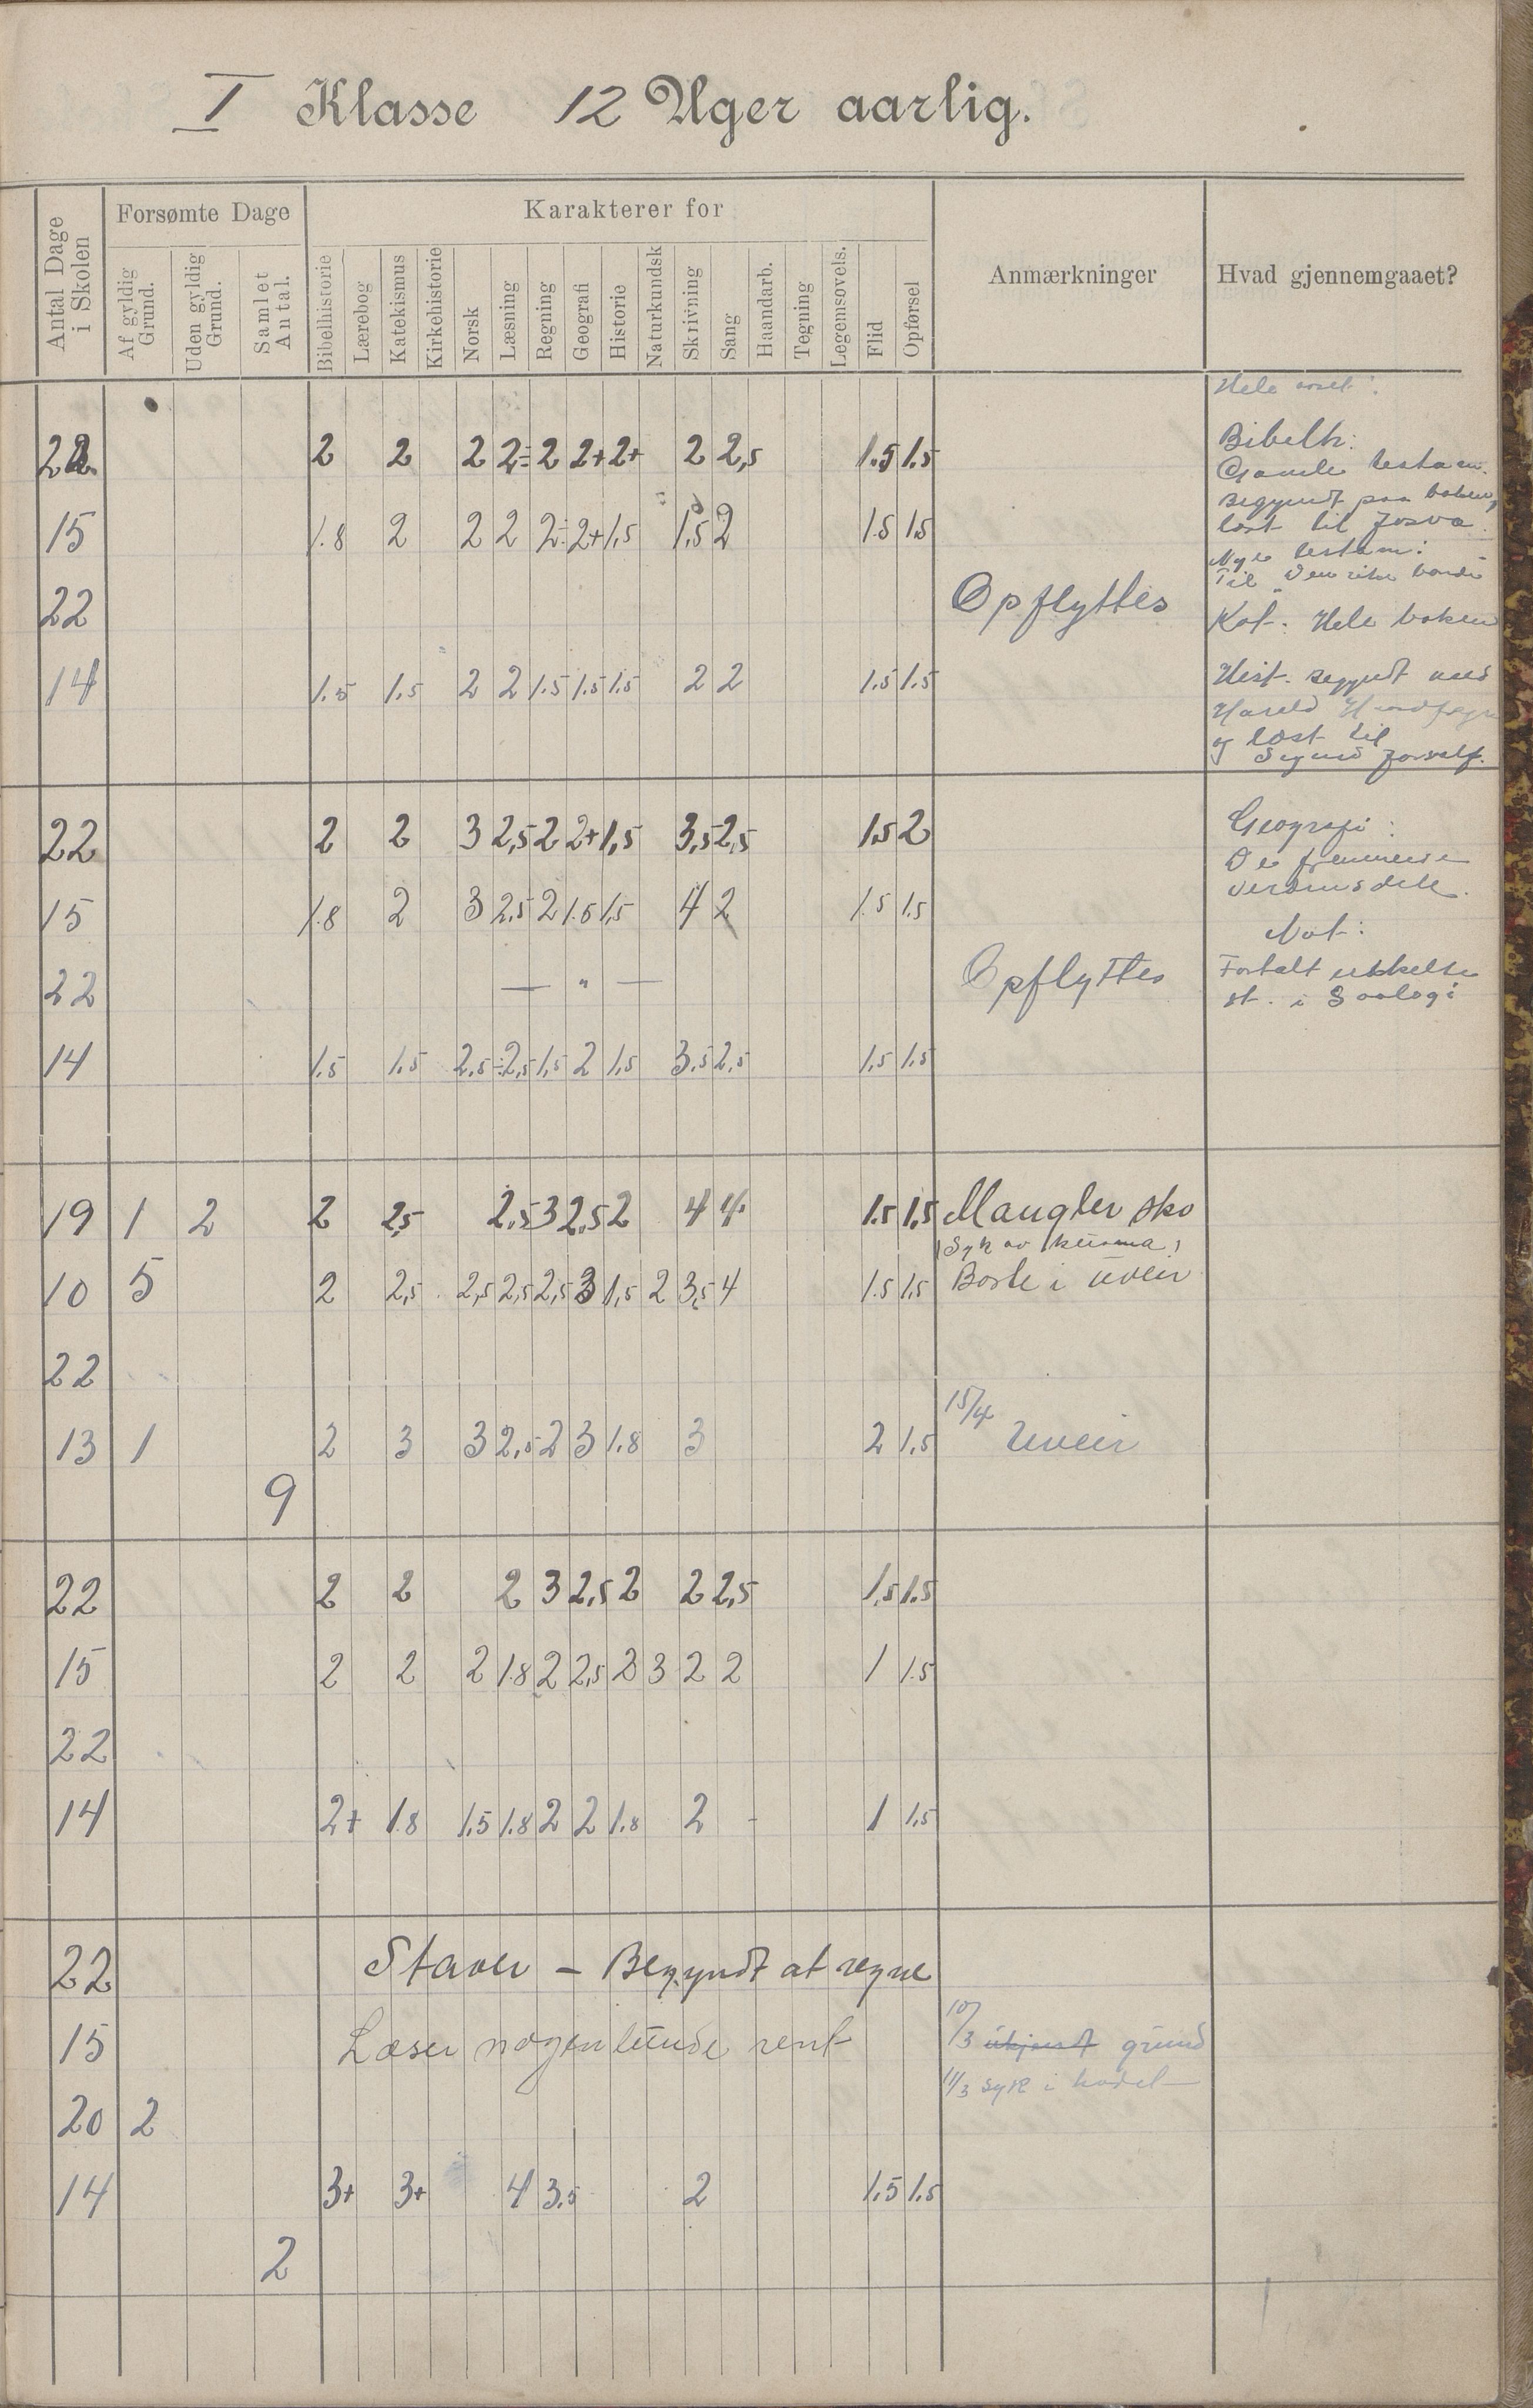 I Klasse 12 Uger aarlig.
Antal Dage i Skolen
Forsømte Dage
Af gyldig Grund.
Uden gyldig Grund.
Samlet Antal.
Karakterer for
Bibelhistorie
Lærebog
Katekismus
Kirkehistorie
Norsk
Læsning
Regning
Geografi
Historie
Naturkundsk
Skrivning
Sang
Haandarb.
Tegning
Legemsovels.
Flid
Opførsel
Anmærkninger
Hvad gjennemgaaet?
22 2 2 2 2÷ 2 2+ 2+ 2 2,5 1.5 1.5
15 1.8 2 2 2 2÷ 2+ 1,5 1,5 2 1.5 1.5
22 Opflyttes
14 1.5 1.5 2 2 1.5 1.5 1.5 2 2 1.5 1.5
Hele aaret:
Bibelh:
Gamle testam.
Begyndt paa boken,
læst til Josva.
Nye testam:
Til "Den rike bonde
Kat. Hele boken
Hist. Begyndt med
Harald Haarfagre
og læst til
Sigurd Jorsalf.
22 2 2 3 2,5 2 2+ 1,5 3,5 2,5 1.5 2
15 1.8 2 3 2,5 2 1.5 1,5 4 2 1.5 1.5
22 — " — Opflyttes
14 1.5 1.5 2,5÷ 2,5 1,5 2 1,5 3,5 2,5 1,5 1.5
Geografi:
De fremmede
verdensdele.
Nat:
Fortalt enkelte
st. i Soologi
19 1 2 2 2,5 2,5 3 2,5 2 4 4 1.5 1,5 Mangler sko
10 5 2 2,5 2,5 2,5 2,5 3 1,5 2 3,5 4 1.5 1.5 Borte i uveir
22
13 1 2 3 3 2,5 2 3 1.8 3 2 1,5 15/4 Uveir
9
22 2 2 2 3 2,5 2 2 2,5 1,5 1.5
15 2 2 2 1.8 2 2,5 2 3 2 2 1 1.5
22
14 2+ 1.8 1.5 1.8 2 2 1.8 2 - 1 1.5
22 Staver - Begyndt at regne
15 Læser nogenlunde rent 10/3 ukjendt grund
11/3 syk i hodet
20 2
14 3+ 3+ 4 3.5 2 1.5 1.5
2